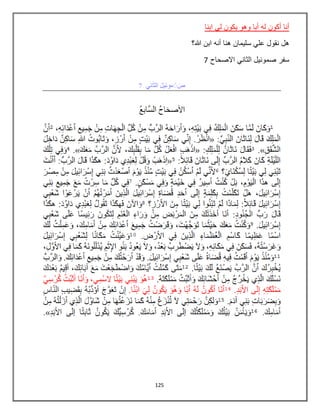 أنا أكون له أبا وهو يكون لي ابنا
هل نقول علي سليمان هنا أنه ابن الله؟
سفر صموئيل الثاني الاصحاح 7
صموئيل الثاني 7
الأصحَاحُ السَّابعُ
١وَكَانَ لَمَّا سَكَنَ الْمَلِكُ فِي بَيْتِهِ، وَأَرَاحَهُ الرَّبُّ مِنْ كُلِّ الْجِهَاتِ مِنْ جَمِيعِ أَعْدَائِهِ، ٢أَنَّ
الْمَلِكَ قَالَ لِنَاثَانَ النَّبِيِّ: «انْظُرْ. إِنِّي سَاكِنٌ فِي بَيْتٍ مِنْ أَرْزٍ، وَتَابُوتُ اللهِ سَاكِنٌ دَاخِلَ
الشُّقَقِ». ٣فَقَالَ نَاثَانُ لِلْمَلِكِ: «اذْهَبِ افْعَلْ كُلَّ مَا بِقَلْبِكَ، لأَنَّ الرَّبَّ مَعَكَ». ٤وَفِي تِلْكَ
اللَّيْلَةِ كَانَ كَلاَمُ الرَّبِّ إِلَى نَاثَانَ قَائِلاً: ٥«اِذْهَبْ وَقُلْ لِعَبْدِي دَاوُدَ: هكَذَا قَالَ الرَّبُّ: أَأَنْتَ
تَبْنِي لِي بَيْتًا لِسُكْنَايَ؟ ٦لأَنِّي لَمْ أَسْكُنْ فِي بَيْتٍ مُنْذُ يَوْمَ أَصْعَدْتُ بَنِي إِسْرَائِيلَ مِنْ مِصْرَ
إِلَى هذَا الْيَوْمِ، بَلْ كُنْتُ أَسِيرُ فِي خَيْمَةٍ وَفِي مَسْكَنٍ. ٧فِي كُلِّ مَا سِرْتُ مَعَ جَمِيعِ بَنِي
إِسْرَائِيلَ، هَلْ تَكَلَّمْتُ بِكَلِمَةٍ إِلَى أَحَدِ قُضَاةِ إِسْرَائِيلَ الَّذِينَ أَمَرْتُهُمْ أَنْ يَرْعَوْا شَعْبِي
إِسْرَائِيلَ قَائِلاً: لِمَاذَا لَمْ تَبْنُوا لِي بَيْتًا مِنَ الأَرْزِ؟ ٨وَالآنَ فَهكَذَا تَقُولُ لِعَبْدِي دَاوُدَ: هكَذَا
قَالَ رَبُّ الْجُنُودِ: أَنَا أَخَذْتُكَ مِنَ الْمَرْبَضِ مِنْ وَرَاءِ الْغَنَمِ لِتَكُونَ رَئِيسًا عَلَى شَعْبِي
إِسْرَائِيلَ. ٩وَكُنْتُ مَعَكَ حَيْثُمَا تَوَجَّهْتَ، وَقَرَضْتُ جَمِيعَ أَعْدَائِكَ مِنْ أَمَامِكَ، وَعَمِلْتُ لَكَ
اسْمًا عَظِيمًا كَاسْمِ الْعُظَمَاءِ الَّذِينَ فِي الأَرْضِ. ١٠وَعَيَّنْتُ مَكَانًا لِشَعْبِي إِسْرَائِيلَ
وَغَرَسْتُهُ، فَسَكَنَ فِي مَكَانِهِ، وَلاَ يَضْطَرِبُ بَعْدُ، وَلاَ يَعُودُ بَنُو الإِثْمِ يُذَلِّلُونَهُ كَمَا فِي الأَوَّلِ،
١١وَمُنْذُ يَوْمَ أَقَمْتُ فِيهِ قُضَاةً عَلَى شَعْبِي إِسْرَائِيلَ. وَقَدْ أَرَحْتُكَ مِنْ جَمِيعِ أَعْدَائِكَ. وَالرَّبُّ
يُخْبِرُكَ أَنَّ الرَّبَّ يَصْنَعُ لَكَ بَيْتًا. ١٢مَتَى كَمُلَتْ أَيَّامُكَ وَاضْطَجَعْتَ مَعَ آبَائِكَ، أُقِيمُ بَعْدَكَ
نَسْلَكَ الَّذِي يَخْرُجُ مِنْ أَحْشَائِكَ وَأُثَبِّتُ مَمْلَكَتَهُ. ١٣هُوَ يَبْنِي بَيْتًا لاسْمِي، وَأَنَا أُثَبِّتُ كُرْسِيَّ
مَمْلَكَتِهِ إِلَى الأَبَدِ. ١٤أَنَا أَكُونُ لَهُ أَبًا وَهُوَ يَكُونُ لِيَ ابْنًا. إِنْ تَعَوَّجَ أُؤَدِّبْهُ بِقَضِيبِ النَّاسِ
وَبِضَرَبَاتِ بَنِي آدَمَ. ١٥وَلكِنَّ رَحْمَتِي لاَ تُنْزَعُ مِنْهُ كَمَا نَزَعْتُهَا مِنْ شَاوُلَ الَّذِي أَزَلْتُهُ مِنْ
أَمَامِكَ. ١٦وَيَأْمَنُ بَيْتُكَ وَمَمْلَكَتُكَ إِلَى الأَبَدِ أَمَامَكَ. كُرْسِيُّكَ يَكُونُ ثَابِتًا إِلَى الأَبَدِ».
125